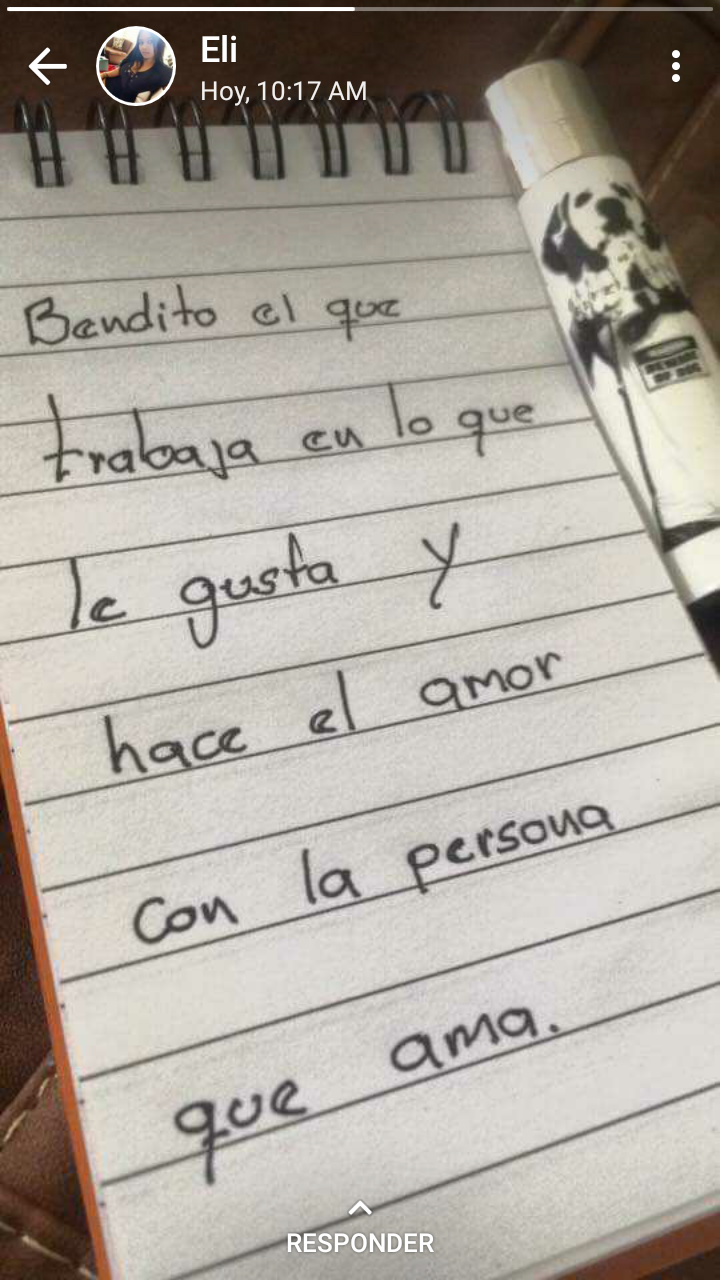 Eli
Hoy, 10:17 AM
Bendito el que
trabaja en lo que
le gusta y
hace el amor
con la persona
que ama.
RESPONDER